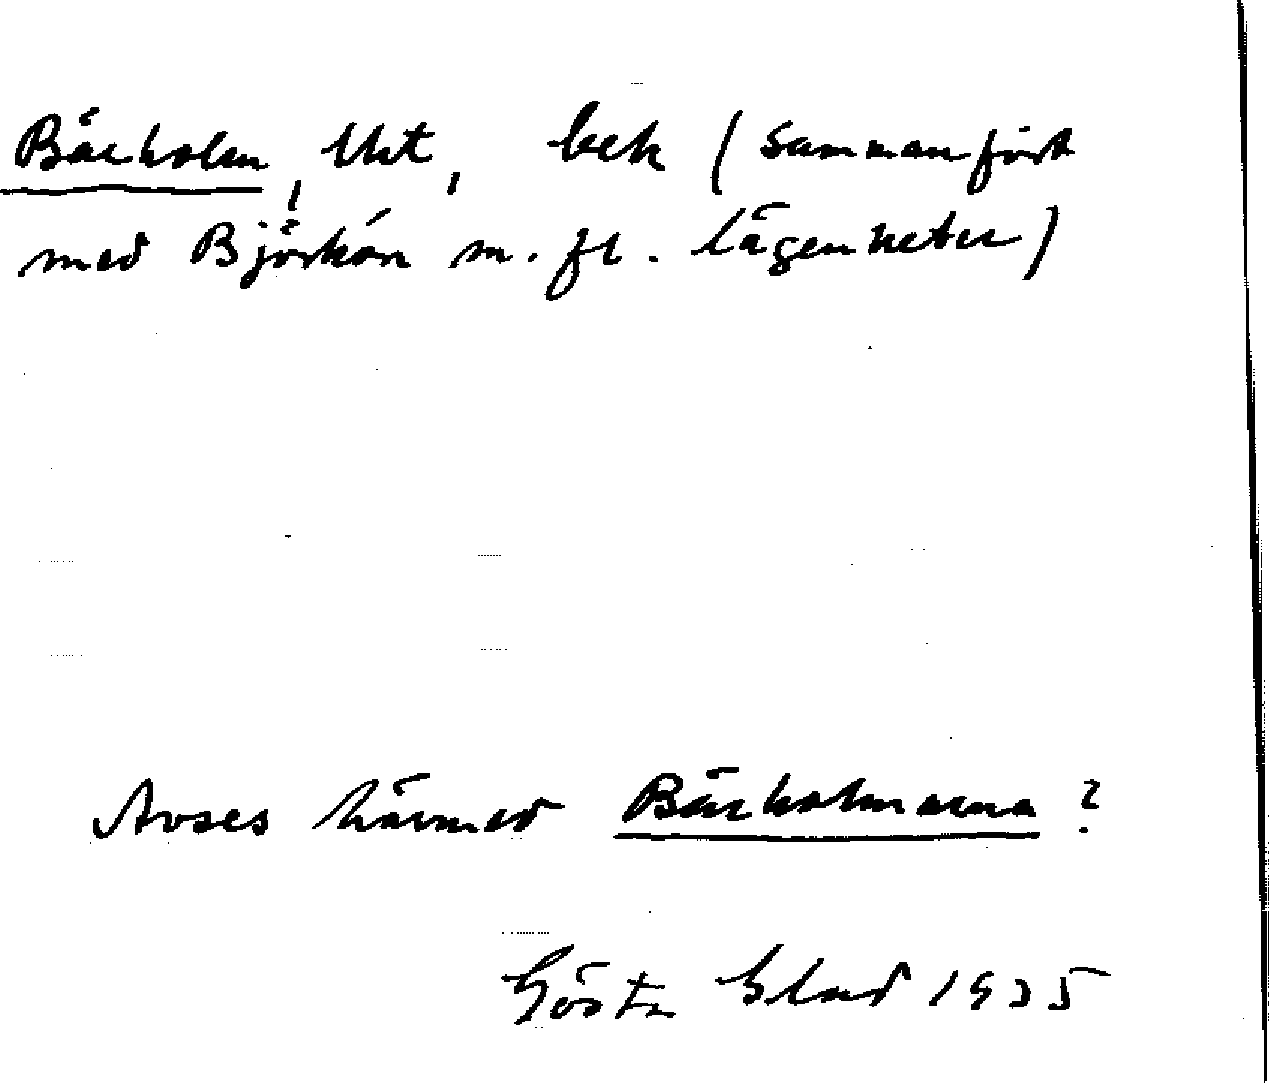 Bärholm, Uht, bek (sammanfört
med Björkön m. fl. lägenheter)
Avses härmed Bärholmarna?
Gösta Blad 1935